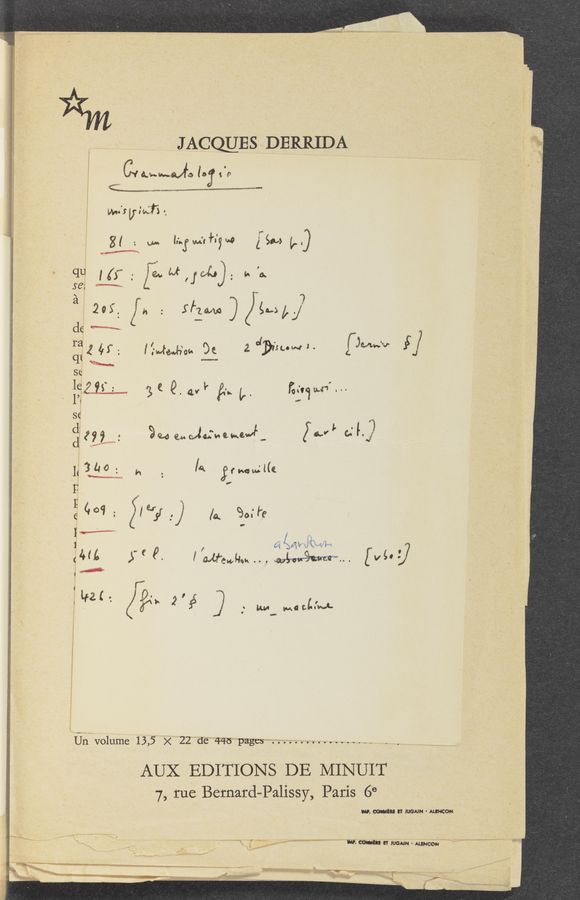 m
JACQUES DERRIDA
Grammatologie
misprints:
81 : un linguistique [bas p.]
qu
165 : [en ht, gche] : n'a
se
à
205 : [n : ] [bas p.]
de
ra
245 : l'intention De 2d Discours. [dernier §]
q
se
le
295 : 3e l. avt fin p.
l'
se
d
299 : desenchainement_ [art cit.]
d
le
340 : n : la grenouille
409 : [1er § :] la doite
abandon
416 5e l. l'attention... abondance... [vbo?]
426 : [fin 2e §] : un_machine
Un volume 13,5 × 22 de 448 pages ..................
AUX EDITIONS DE MINUIT
7, rue Bernard-Palissy, Paris 6e
IMP. CORBIÈRE ET JUGAIN - ALENÇON
IMP. CORBIÈRE ET JUGAIN - ALENÇON